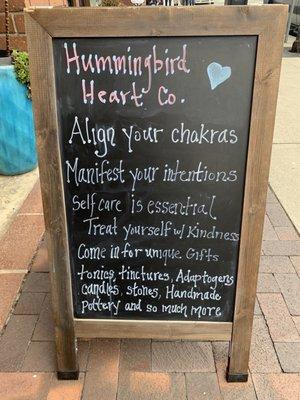 Hummingbird
Heart Co.
Align your chakras
Manifest your intentions
Self care is essential
Treat yourself w/ Kindness
Come in for unique Gifts
tonics, tinctures, Adaptogens
candles, stones, Handmade
pottery and so much more